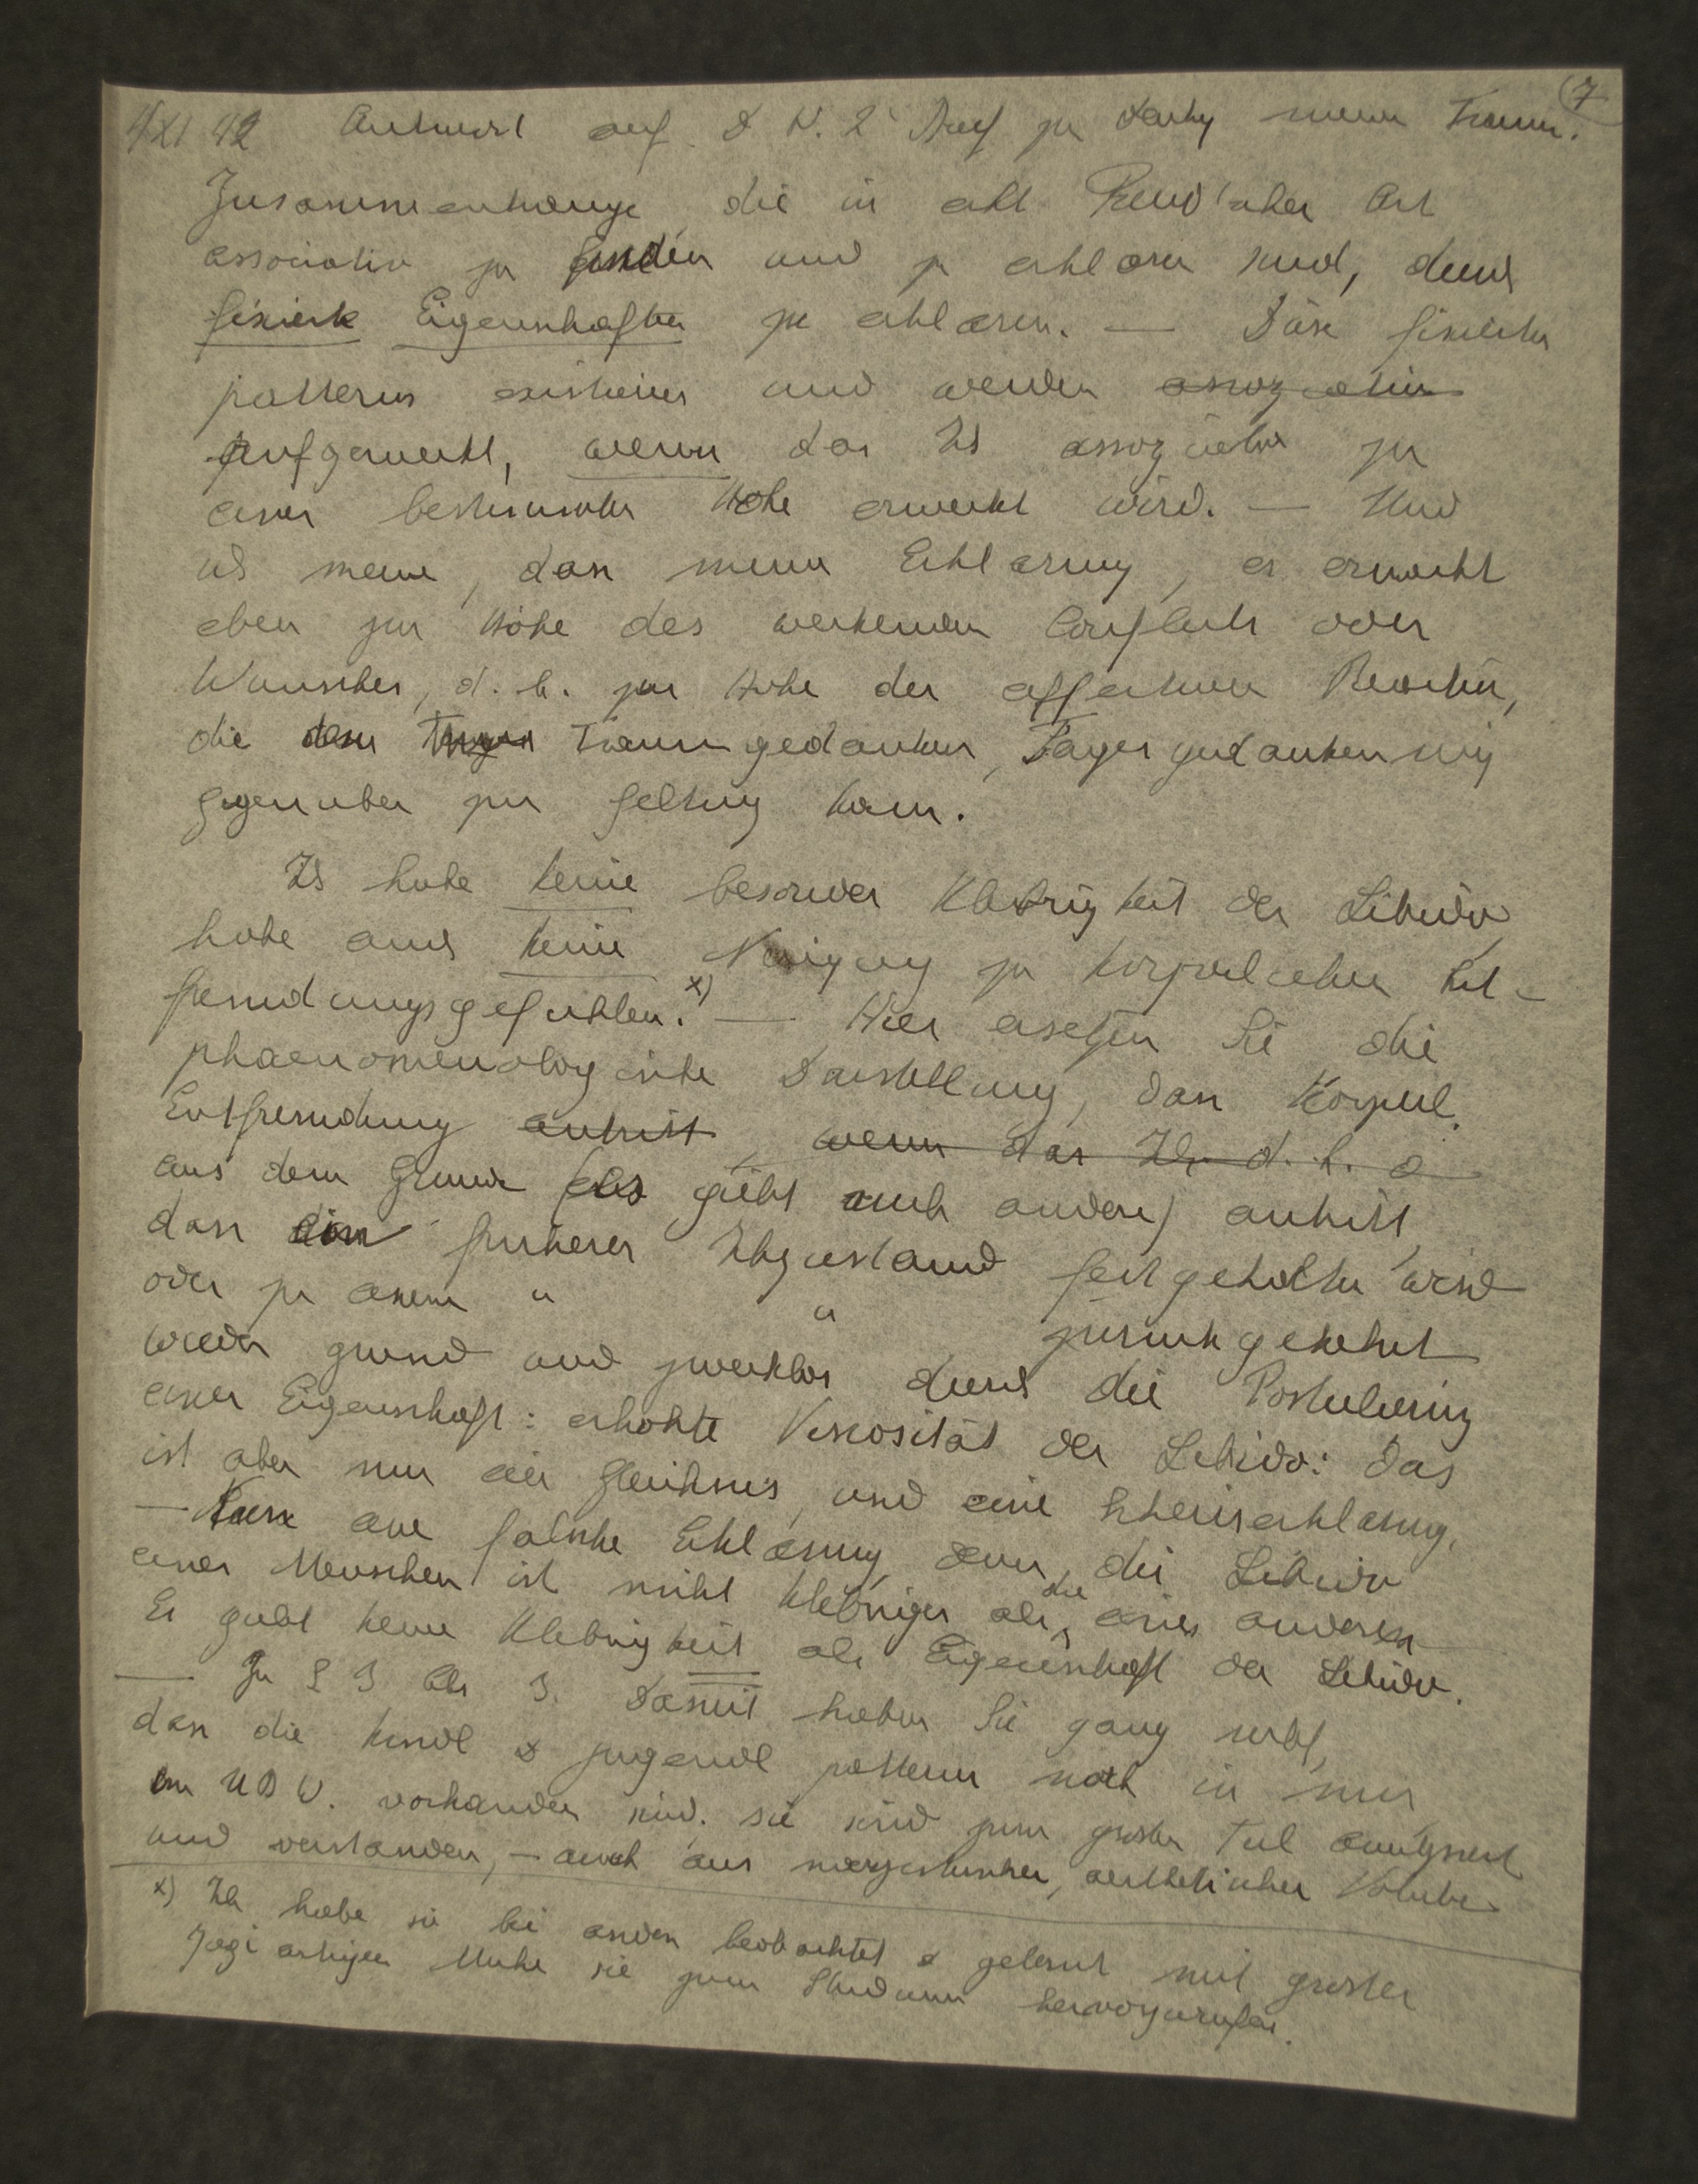 4 XI 42 Antwort auf D W. 2t Brief zu Deutg meiner Träume. (7
Zusammenhänge die in echt Freud'scher Art
associativ zu finden und zu erklären sind, durch
fixierte Eigenschaften zu erklären. — Diese fixierten
patterns existieren und werden assoziativ
aufgeweckt, wenn das Ich assoziativ zu
einer bestimmten Höhe erweckt wird. — Und
ich meine, dass meine Erklärung, es erwacht
eben zur Höhe des weckenden Conflicts oder
Wunsches, d. h. zur Höhe der affectiven Reaction,
die dem Traumgedanken, Tagesgedanken
gegenüber zur Geltung kam.
Ich habe keine besondere Klebrigkeit der Libido,
habe auch keine Neigung zu körperlichen Ent-
fremdungsgefühlen. x) — Hier ersetzen Sie die
phaenomenologische Darstellung, dass körperl.
Entfremdung eintritt, wenn das Ich d. h. a
aus dem Grunde (es giebt auch andere) eintritt,
dass ein früherer Ichzustand festgehalten wird
oder zu einem " " zurückgekehrt
wieder grund und zwecklos durch die Postulierung
einer Eigenschaft: erhöhte Viscosität der Libido: Das
ist aber nur ein Gleichnis, und eine Scheinerklärung,
— eine falsche Erklärung, denn die Libido
eines Menschen ist nicht klebriger als die eines anderen
Es giebt keine Klebrigkeit als Eigenschaft der Libido.
— Zu S 3 Abs 3. Damit haben Sie ganz recht,
dass die kindl & jugendl pattern noch in mir
im UBW. vorhanden sind. Sie sind zum grossen Teil
und verstanden, — auch aus aesthetischer
x) Ich habe sie bei anderen beobachtet & gelernt mit grosser
Yogi artiger Mühe sie zum Studium hervorzurufen.